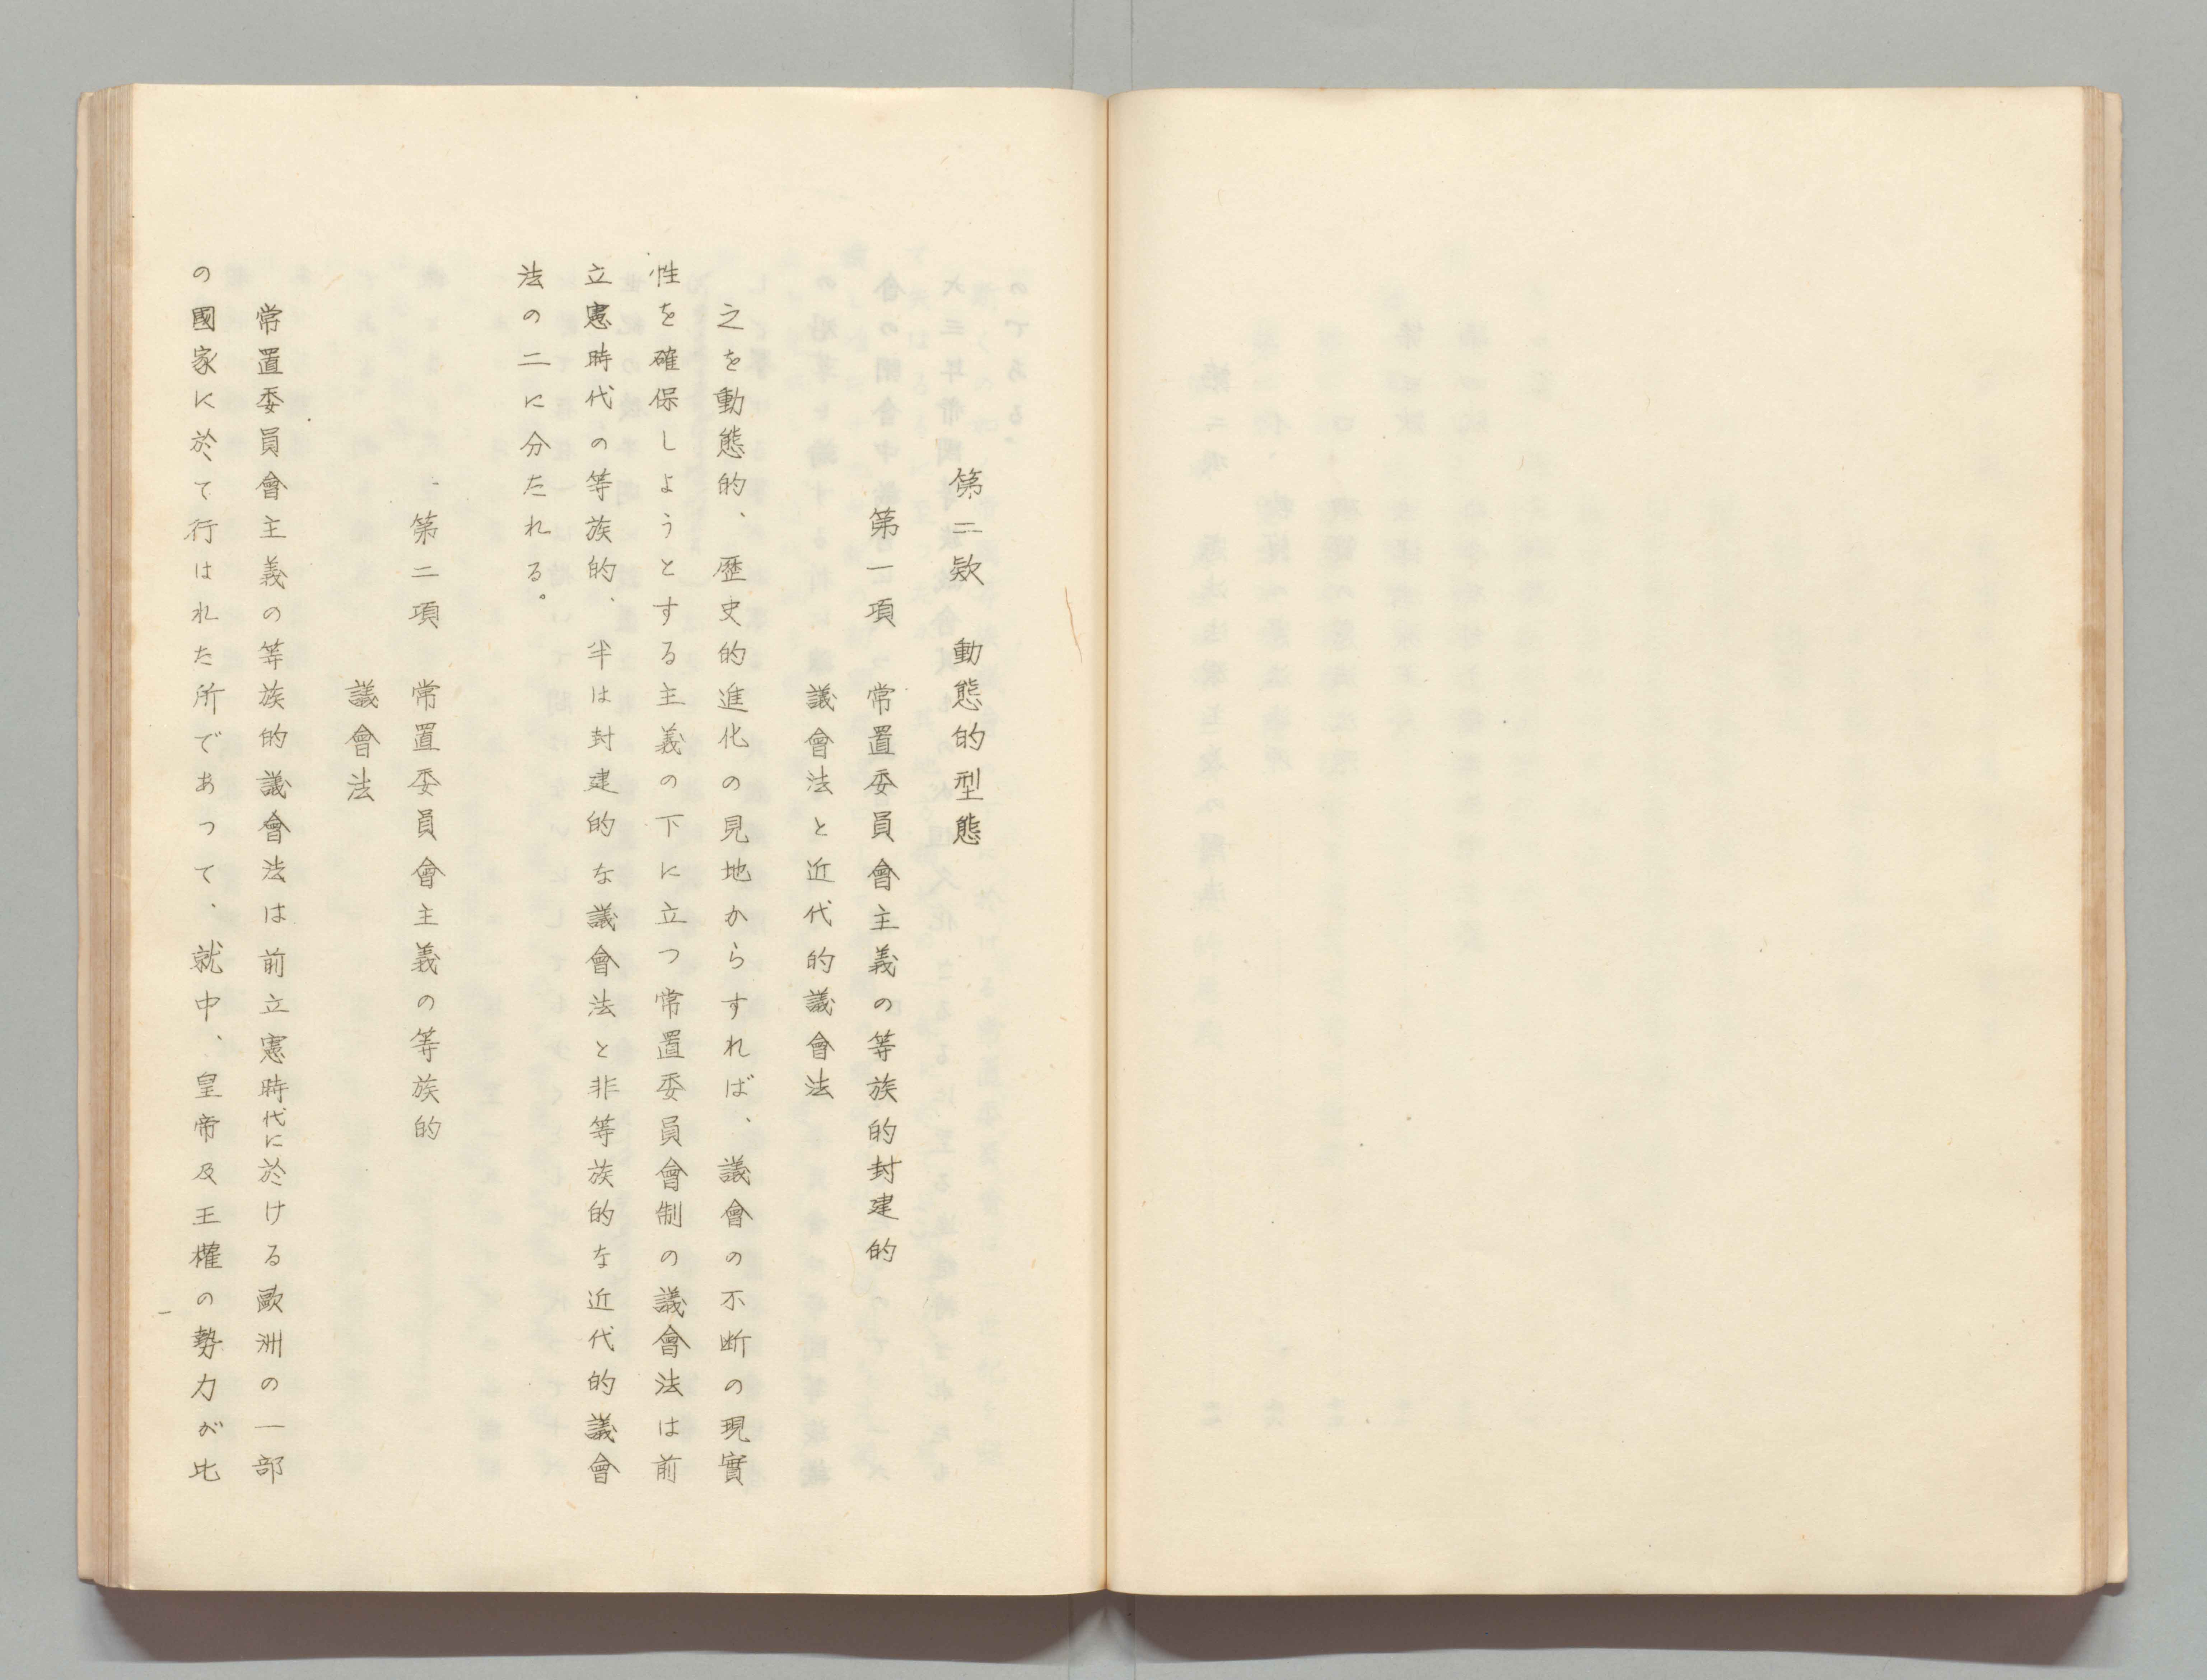 第二欵　動態的型態
第一項　常置委員會主義の等族的封建的
議會法と近代的議會法
之を動態的、歴史的進化の見地からすれば、議會の不断の現實
性を確保しようとする主義の下に立つ常置委員會制の議會法は前
立憲時代の等族的、半は封建的な議會法と非等族的な近代的議會
法の二に分たれる。
第二項　常置委員會主義の等族的
議會法
常置委員會主義の等族的議會法は前立憲時代に於ける歐洲の一部
の國家に於て行はれた所であつて、就中、皇帝及王權の勢力が比